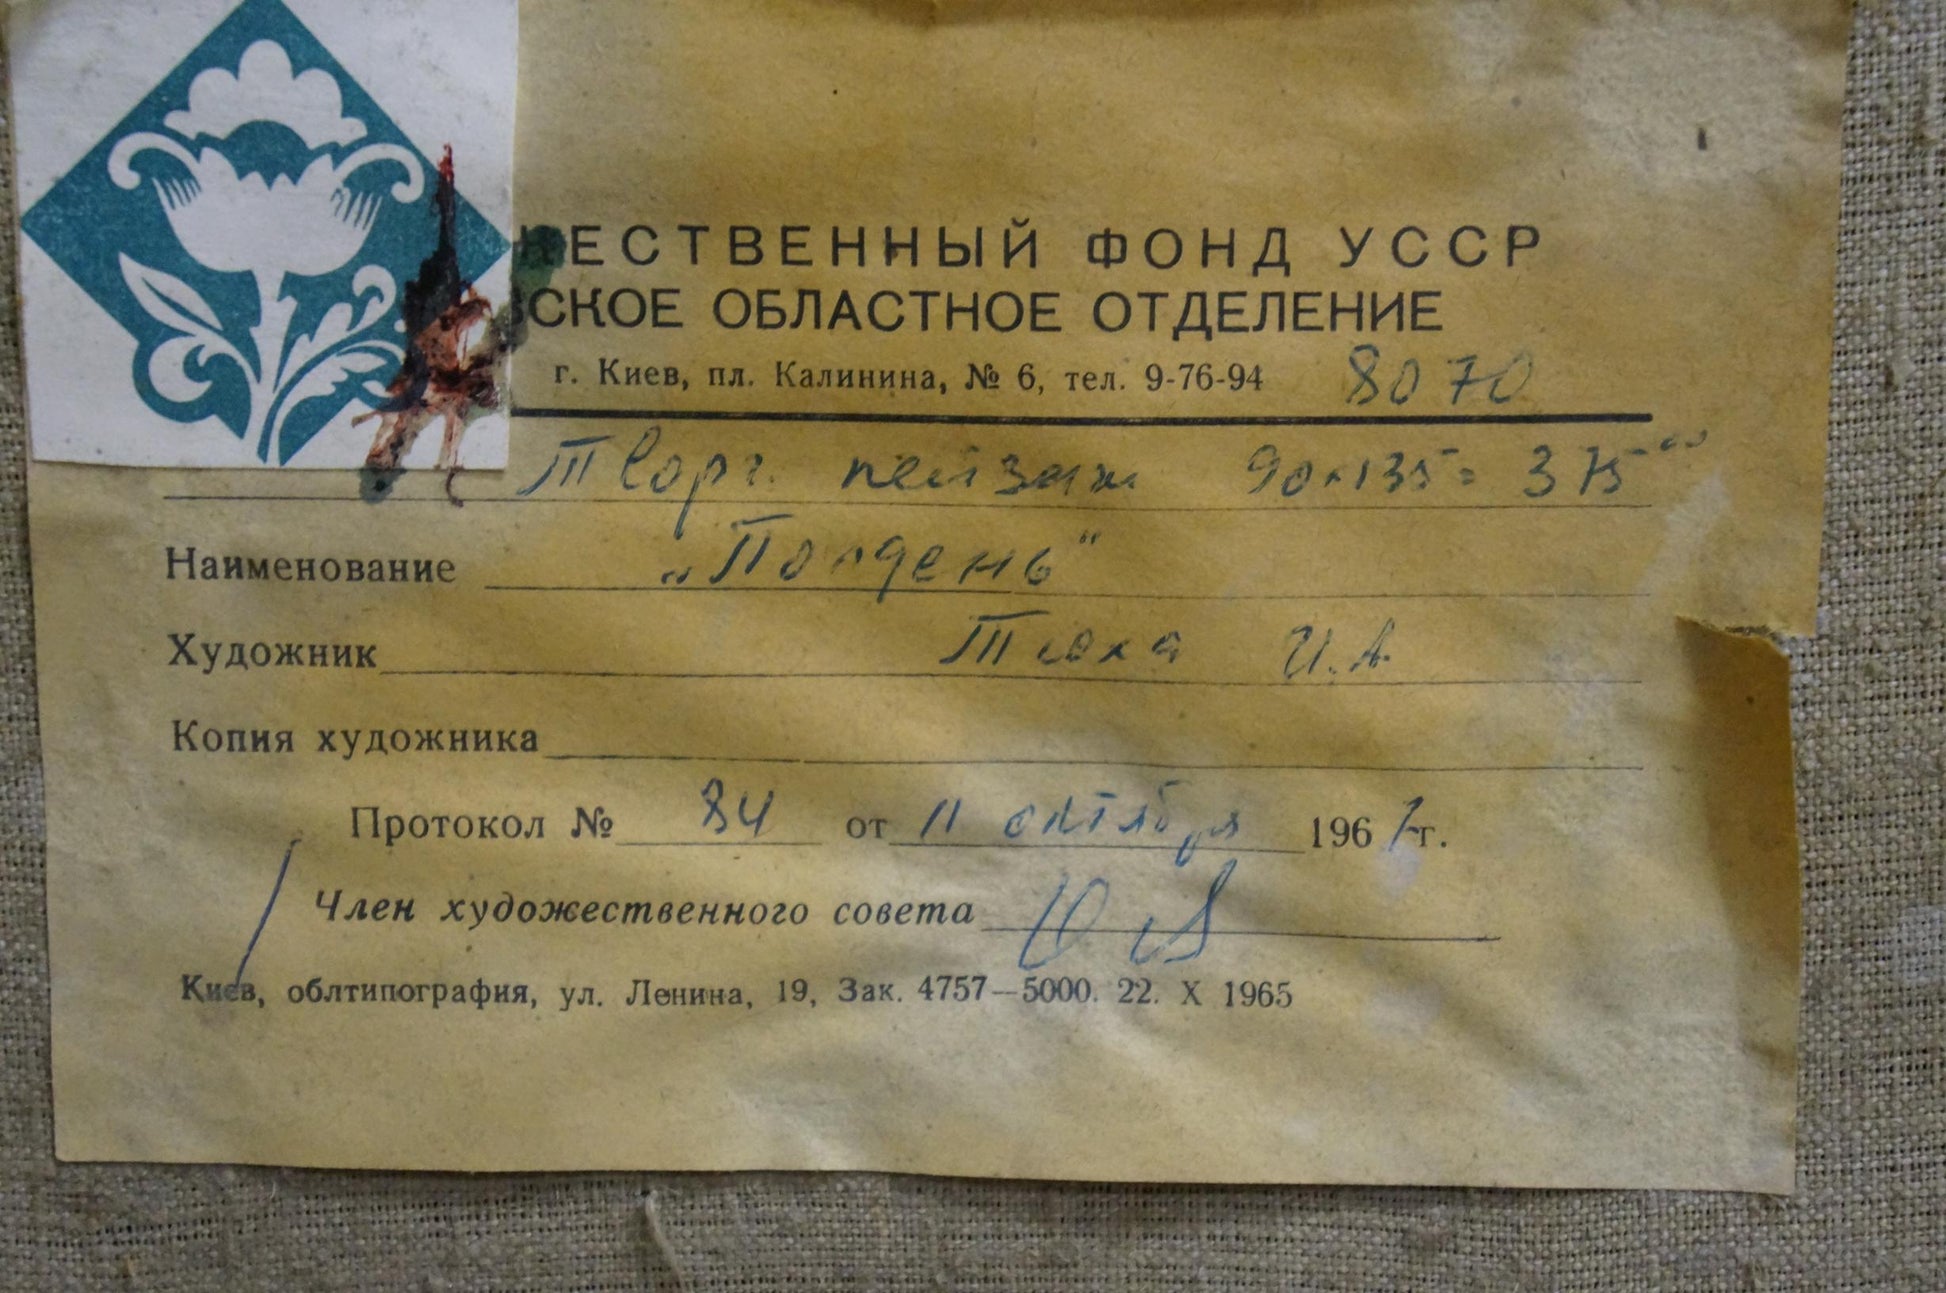 ЕСТВЕННЫЙ ФОНД УССР
СКОЕ ОБЛАСТНОЕ ОТДЕЛЕНИЕ
г. Киев, пл. Калинина, № 6, тел. 9-76-94 8070
Творч. пейзаж 90×135= 375
Наименование „Полдень"
Художник Тюха И.А.
Копия художника
Протокол № 84 от 11 октября 1967 г.
Член художественного совета
Киев, облтипография, ул. Ленина, 19, Зак. 4757—5000. 22. X 1965